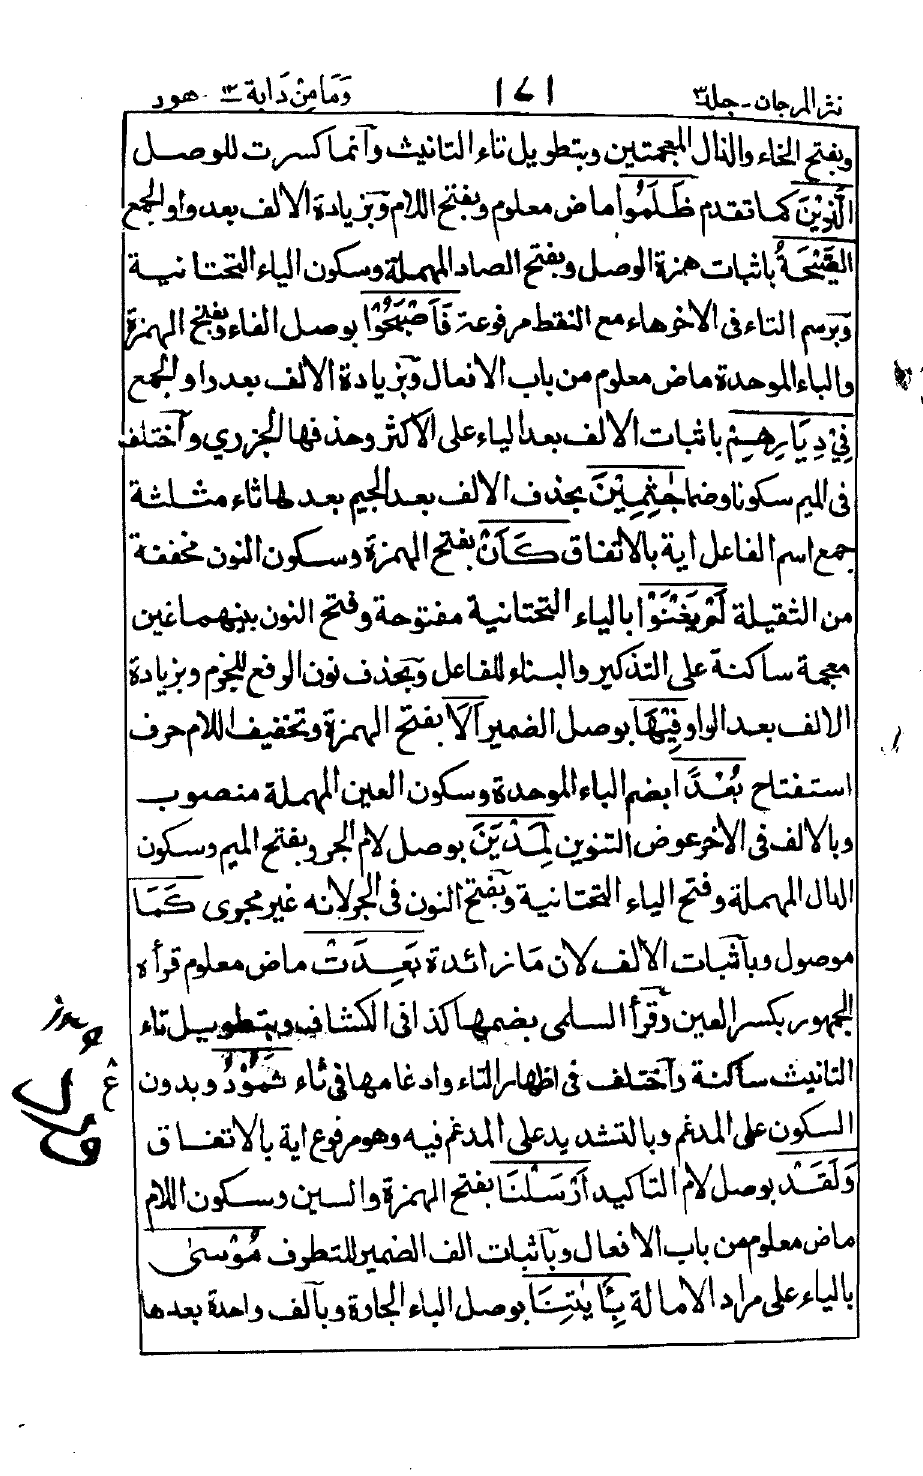 نثر المرجان - جلد ٣
١٧١
وَمَا مِنْ دَابة ١٢ - هود
وبفتح الخاء والذال المعجمتين وبتطويل تاء التانيث وآنما كسرت للوصل
الَّذِيْنَ كما تقدم ظَلَمُوا ماض معلوم وبفتح اللام وَبزيادة الالف بعد واو الجمع
الصَّيْحَةُ باثبات همزة الوصل وبفتح الصاد المهملة وسكون الياء التحتانية
وَبرسم التاء فى الاخر هاء مع النقط مرفوعة فَاَصْبَحُوْا بوصل الفاء وبفتح الهمزة
والباء الموحدة ماض معلوم من باب الافعال وَبزيادة الالف بعد واو الجمع
فِيْ دِيَارِهِمْ باثبات الالف بعد الياء على الاكثر وحذفها الجزري وآختلف
فى الميم سكونا وضما جٰثِمِيْنَ بحذف الالف بعد الجيم بعدها ثاء مثلثة
جمع اسم الفاعل اية بالاتفاق كَاَنْ بفتح الهمزة وسكون النون مخففة
من الثقيلة لَمْ يَغْنَوْا بالياء التحتانية مفتوحة وفتح النون بينهما غين
معجمة ساكنة على التذكير والبناء للفاعل وَبحذف نون الرفع للجزم وبزيادة
الالف بعد الواو فِيْهَا بوصل الضمير اَلَا بفتح الهمزة وتخفيف اللام حرف
استفتاح بُعْدًا بضم الباء الموحدة وسكون العين المهملة منصوب
وبالالف فى الاخر عوض التنوين لِمَدْيَنَ بوصل لام الجر وبفتح الميم وسكون
الدال المهملة وفتح الياء التحتانية وَبفتح النون فى الجر لانه غير مجرى كَمَا
موصول وبآثبات الالف لان مَا زائدة بَعِدَتْ ماض معلوم قرأه
الجمهور بكسر العين وَقرأ السلمى بضمها كذا فى الكشاف وبتطويل تاء
التانيث ساكنة وآختلف فى اظهار التاء وادغامها فى ثاء ثَمُوْدُ وبدون
السكون على المدغم وبالتشديد على المدغم فيه وهو مرفوع اية بالاتفاق
وَلَقَدْ بوصل لام التاكيد اَرْسَلْنَا بفتح الهمزة والسين وسكون اللام
ماض معلوم من باب الافعال وبآثبات الف الضمير للتطرف مُوْسىٰ
بالياء على مراد الامالة بِاٰيٰتِنَا بوصل الباء الجارة وبآلف واحدة بعدها
ع